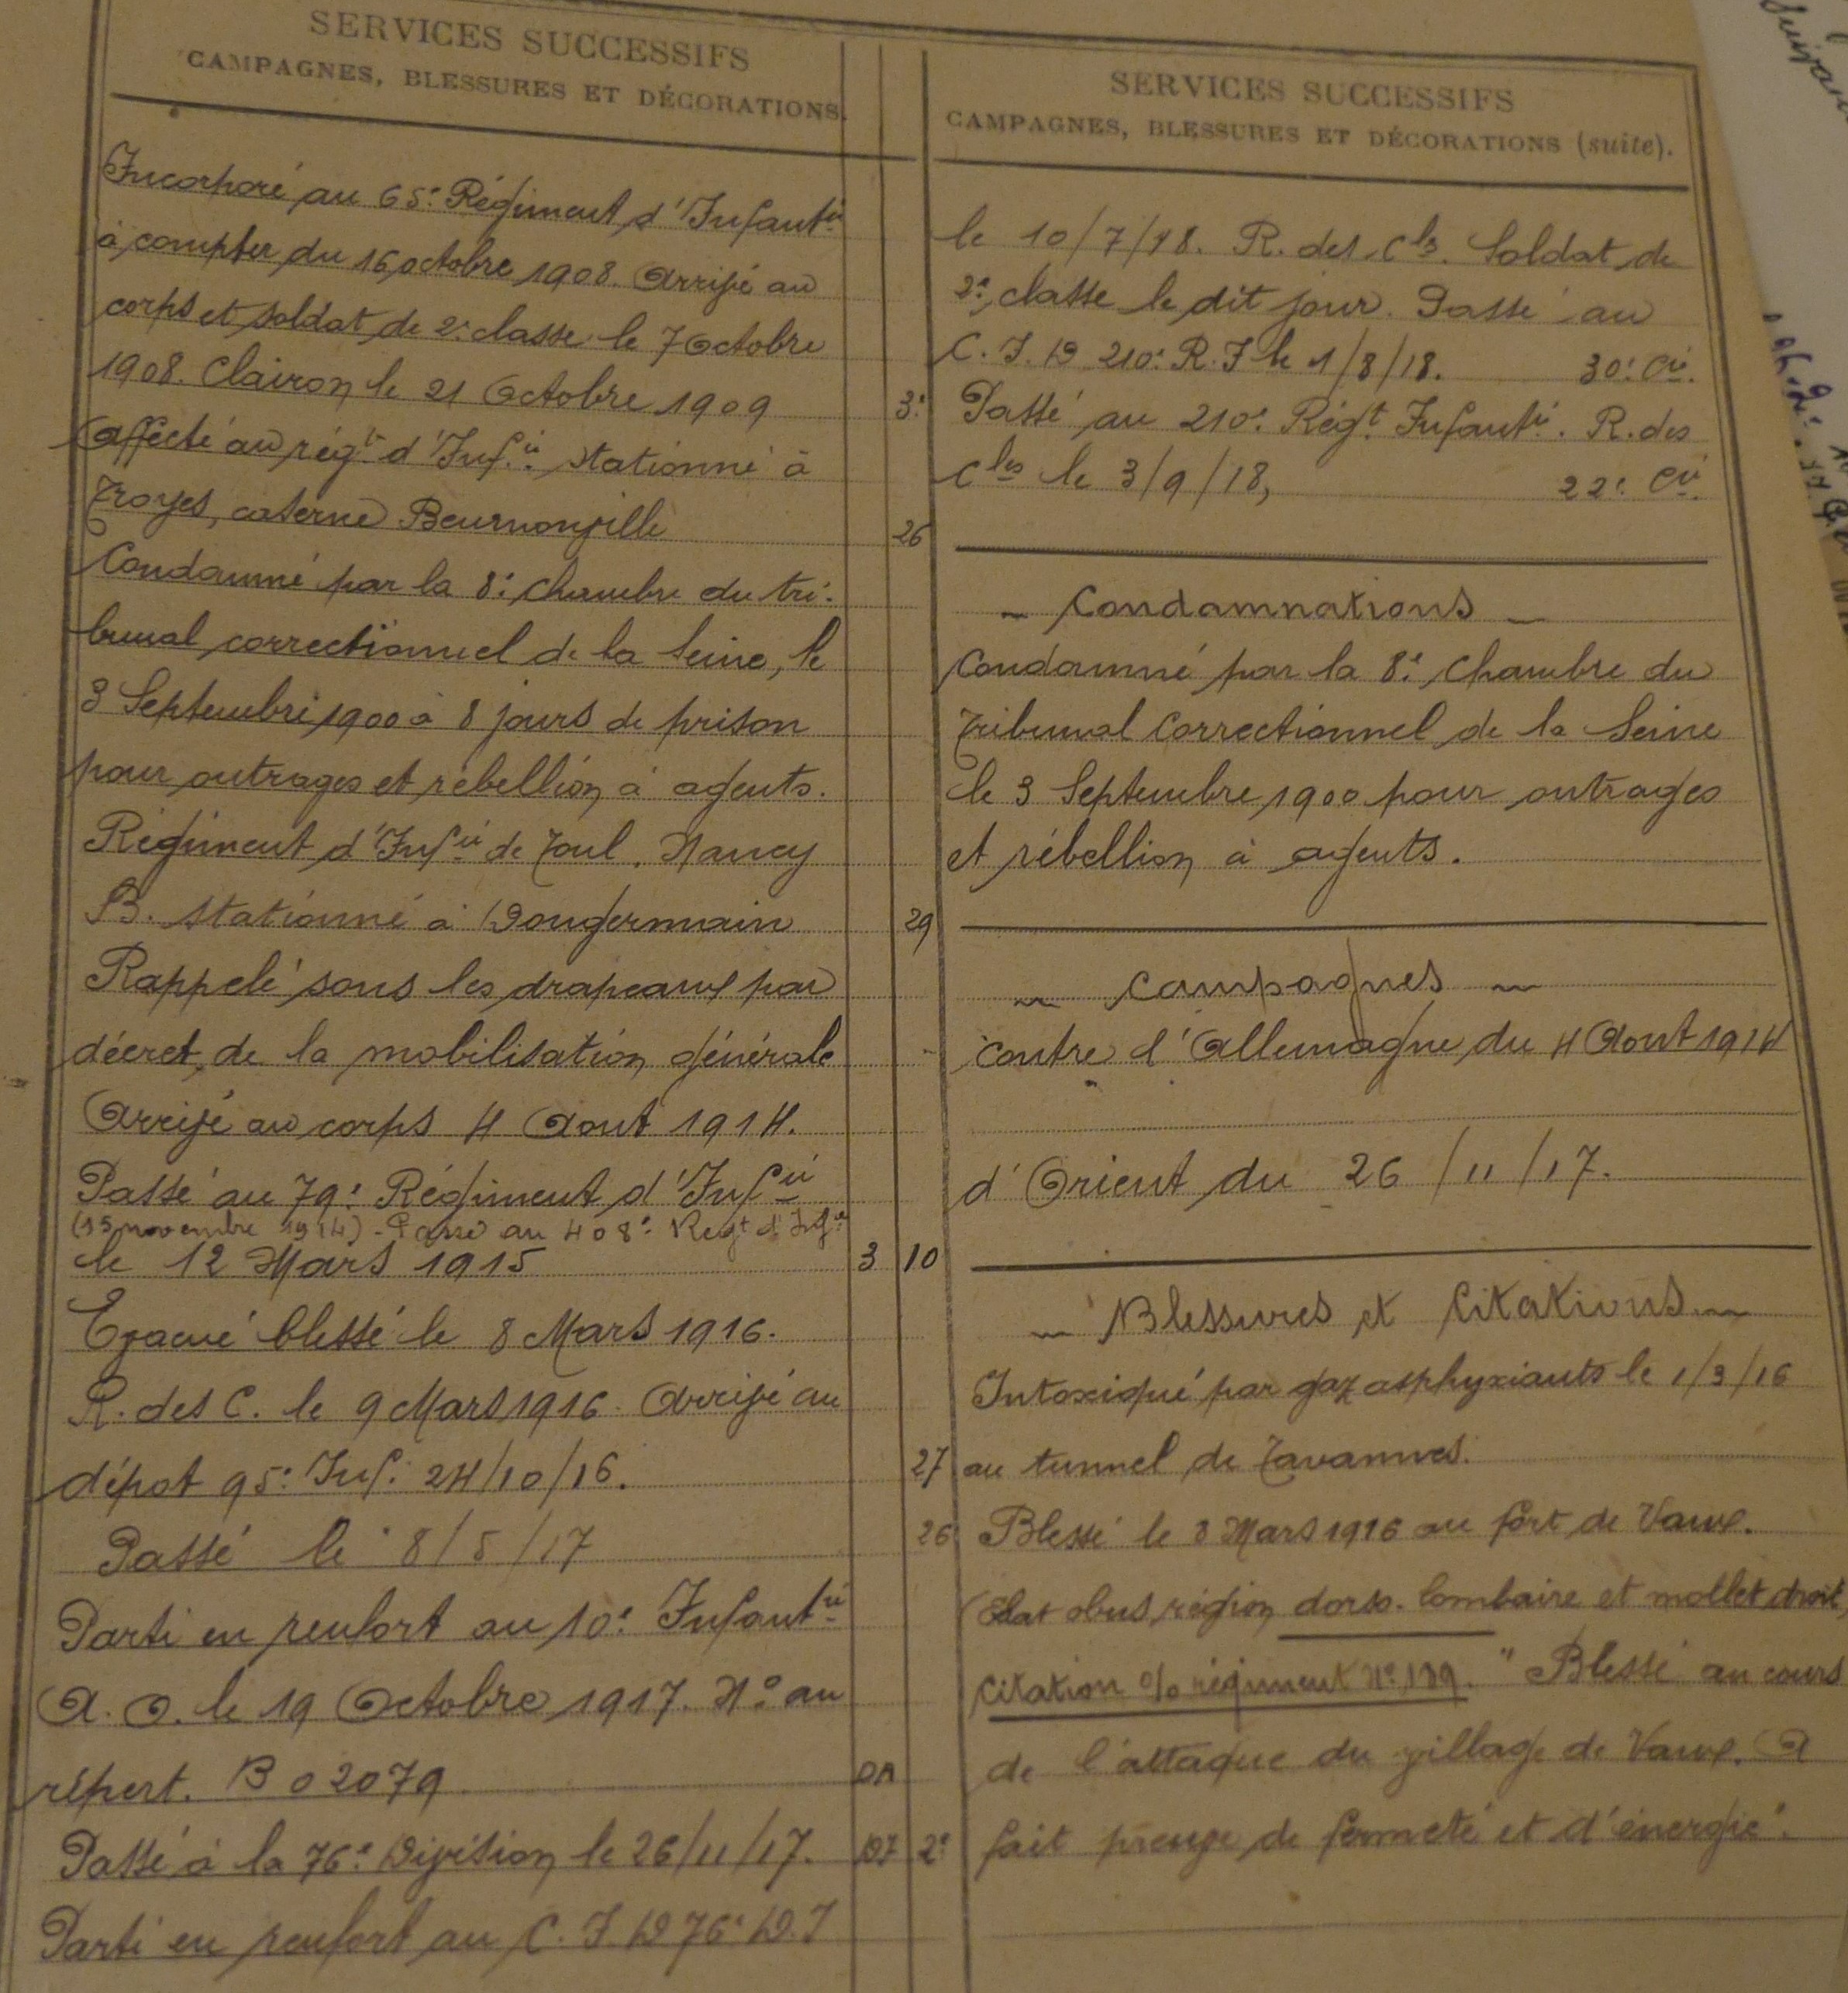 SERVICES SUCCESSIFS
CAMPAGNES, BLESSURES ET DÉCORATIONS.
Incorporé au 65e Régiment d'Infantie
à compter du 16 octobre 1908. Arrivé au
corps et soldat de 2e classe le 7 Octobre
1908. Clairon le 21 Octobre 1909
Affecté au régt d'Infie stationné à
Troyes, caserne Beurnonville
Condamné par la 8e Chambre du tri-
bunal correctionnel de la Seine, le
3 Septembre 1900 à 8 jours de prison
pour outrages et rébellion à agents.
Régiment d'Infie de Toul. Nancy
B. stationné à Dongermain
Rappelé sous les drapeaux par
décret de la mobilisation générale
Arrivé au corps 4 Aout 1914.
Passé au 79e Régiment d'Infie
(15 novembre 1914) - Passé au 408e Regt d'Infie
le 12 Mars 1915 3
Evacué blessé le 8 Mars 1916.
R. des C. le 9 Mars 1916. Arrivé au
dépot 95e Inf. 24/10/16.
Passé le 8/5/17
Parti en renfort au 10e Infantie
A. O. le 19 Octobre 1917. No au
répert. B 02079 DA
Passé à la 76e Division le 26/11/17. D7
Parti en renfort au C. I. D 76e D. I
SERVICES SUCCESSIFS
CAMPAGNES, BLESSURES ET DÉCORATIONS (suite).
le 10/7/18. R. des Cls. Soldat de
2e classe le dit jour. Passé au
C. I. D 210e R. I le 1/8/18. 30e Cie.
3e Passé au 210e Régt Infantie. R. des
Cles le 3/9/18, 22e Cie.
26
- Condamnations -
Condamné par la 8e Chambre du
Tribunal Correctionnel de la Seine
le 3 Septembre 1900 pour outrages
et rébellion à agents.
29
- Campagnes -
Contre l'Allemagne du 4 Aout 1914
d'Orient du 26/11/17.
10
- Blessures et Citations -
Intoxiqué par gaz asphyxiants le 1/3/16
27 au tunnel de Tavannes.
26 Blessé le 8 Mars 1916 au fort de Vaux.
Eclat obus région dorso-lombaire et mollet droit
Citation % régiment No 139. "Blessé au cours
de l'attaque du village de Vaux. A
2e fait preuve de fermeté et d'énergie".